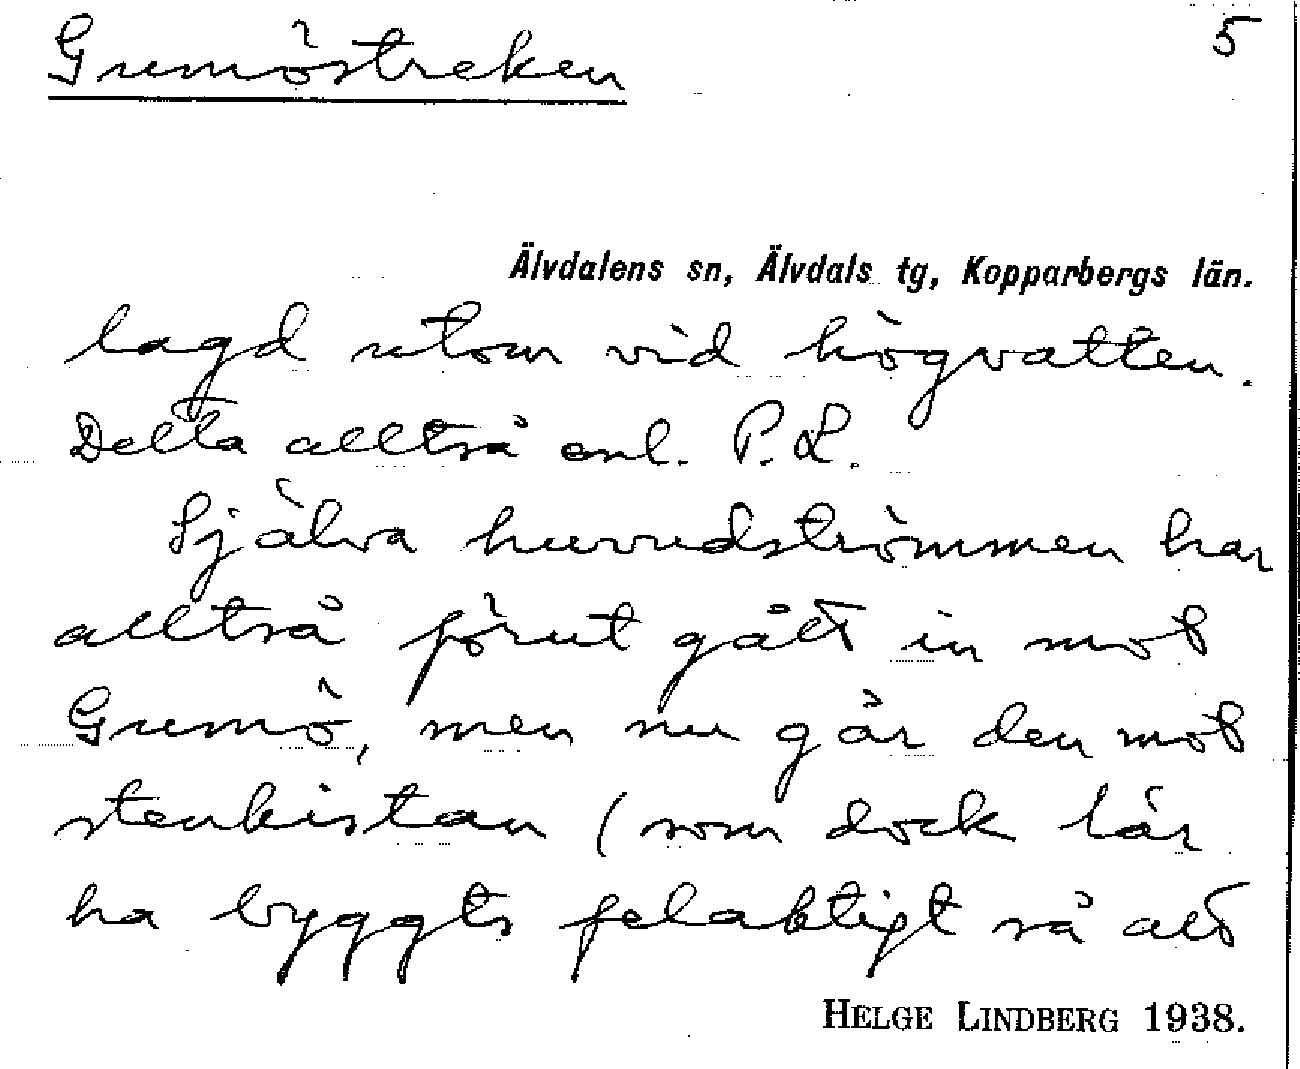 Grumöstreken
5
Älvdalens sn, Älvdals tg, Kopparbergs län.
lagd utom vid högvatten.
Detta alltså enl. P. L.
Själva huvudströmmen har
alltså förut gått in mot
Grumö, men nu går den mot
stenkistan (som dock lär
ha byggts felaktigt så att
HELGE LINDBERG 1938.